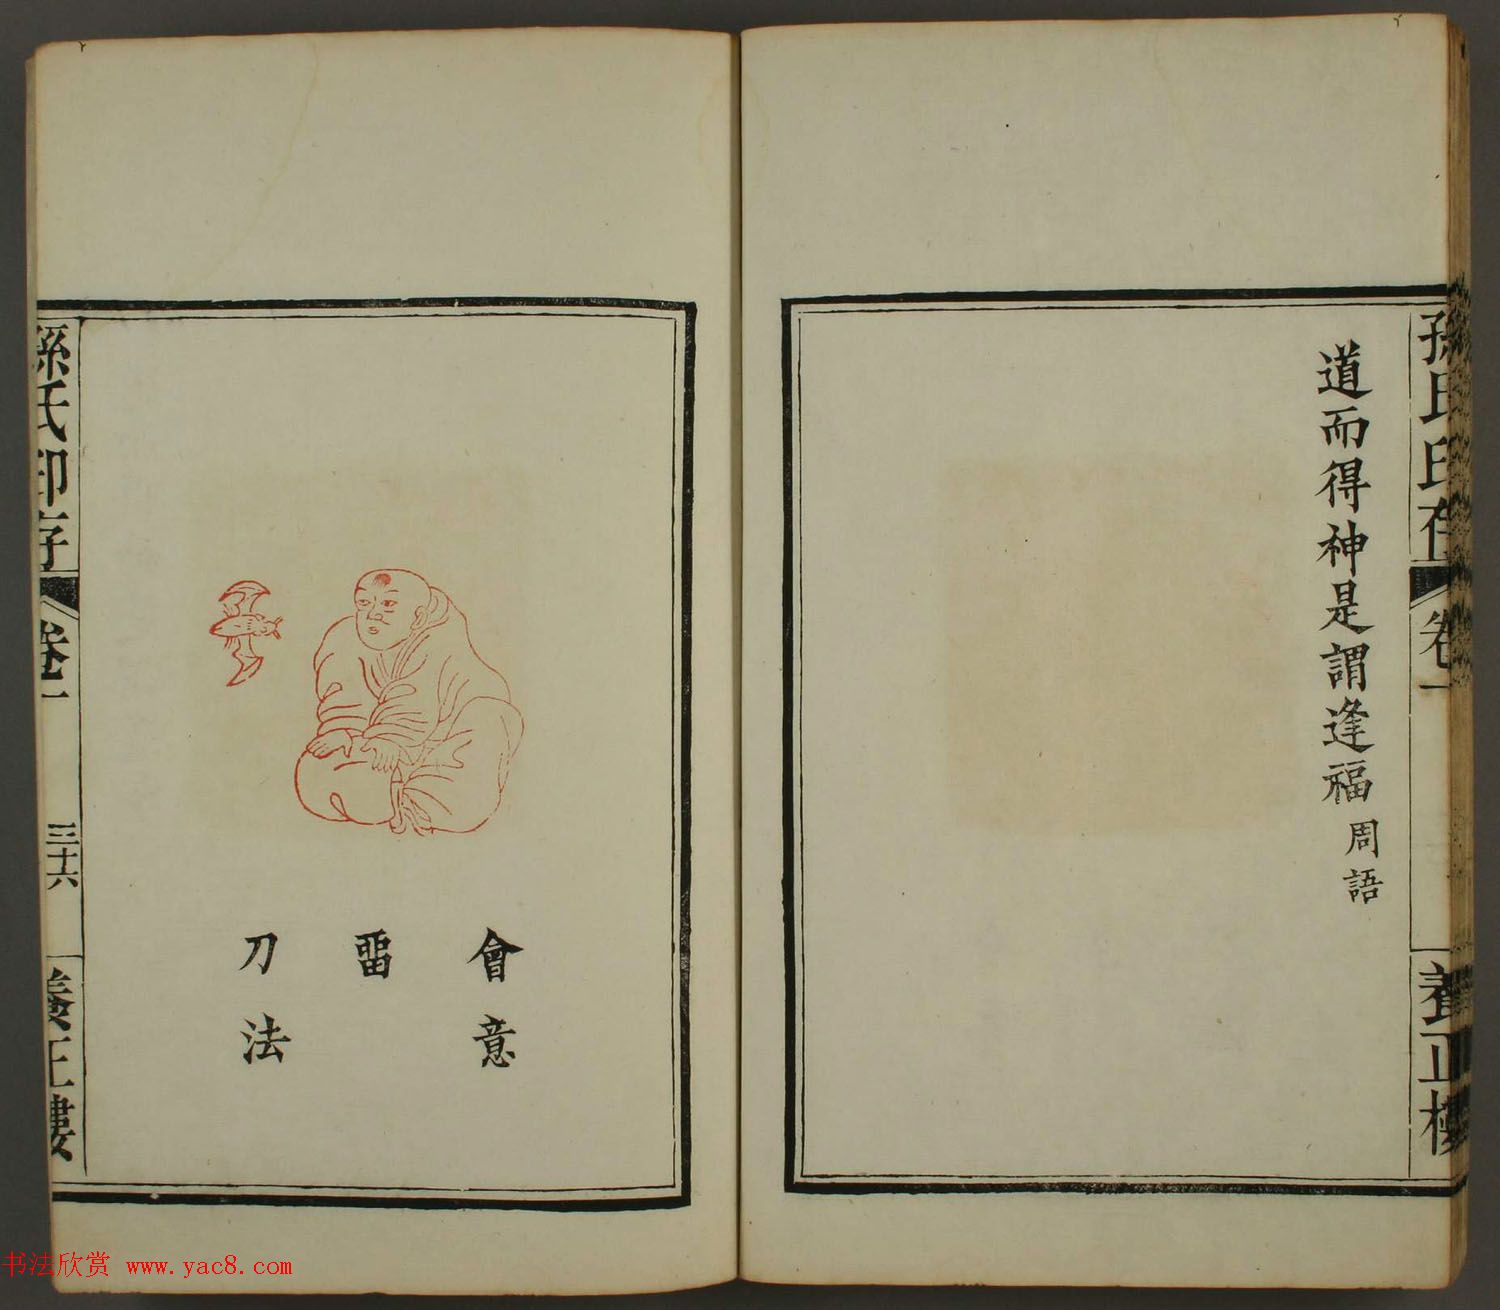 孫氏印存 卷一 養正樓
道而得神是謂逢福 周語
會意
畱
刀法
孫氏印存 卷一 三十六 養正樓
书法欣赏 www.yac8.com